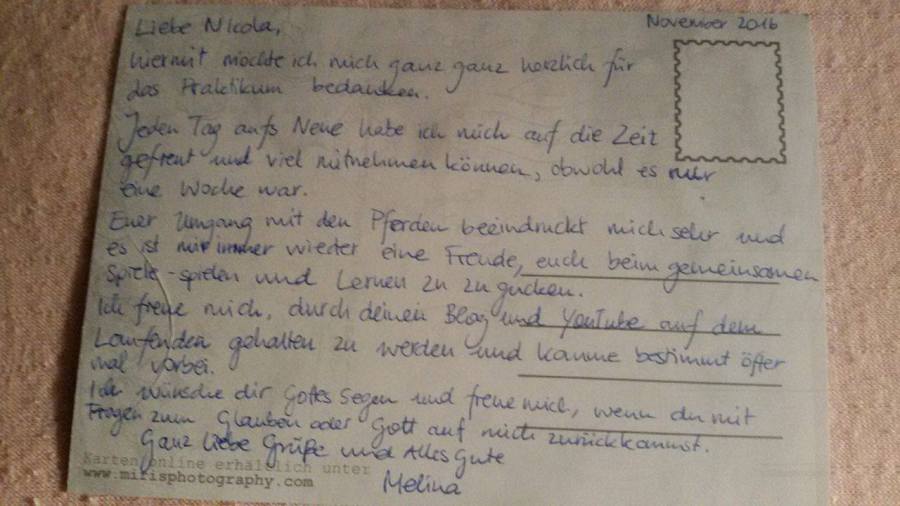 November 2016
Liebe Nicola,
hiermit möchte ich mich ganz ganz herzlich für
das Praktikum bedanken.
Jeden Tag aufs Neue habe ich mich auf die Zeit
gefreut und viel mitnehmen können, obwohl es nur
eine Woche war.
Euer Umgang mit den Pferden beeindruckt mich sehr und
es ist mir immer wieder eine Freude, euch beim gemeinsamen
Spiele-spielen und Lernen zu zu gucken.
Ich freue mich, durch deinen Blog und YouTube auf dem
Laufenden gehalten zu werden und komme bestimmt öfter
mal vorbei.
Ich wünsche dir Gottes Segen und freue mich, wenn du mit
Fragen zum Glauben oder Gott auf mich zurückkommst.
Ganz liebe Grüße und Alles Gute
Melina
Karten online erhältlich unter
www.mirisphotography.com